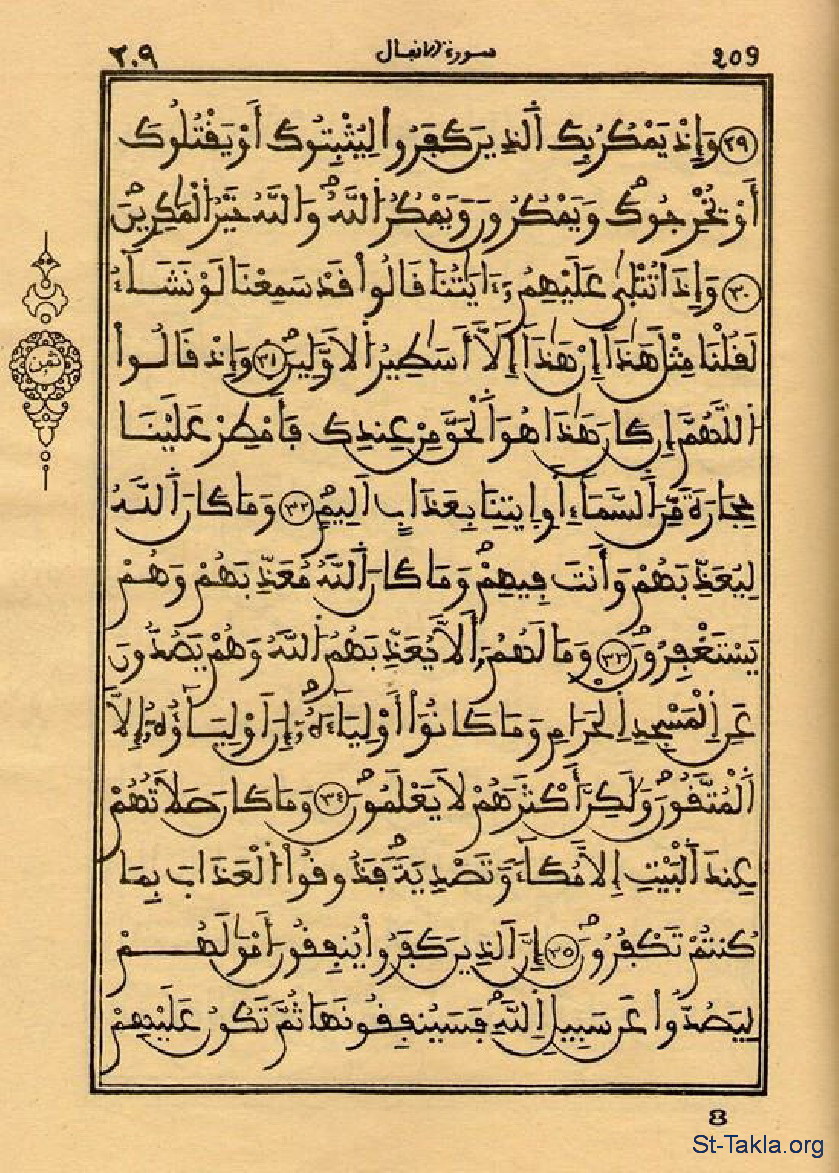 ٢٠٩ سورة الأنفال 209
٢٩ وَإِذْ يَمْكُرُ بِكَ اَلذِينَ كَفَرُواْ لِيُثْبِتُوكَ أَوْ يَقْتُلُوكَ
أَوْ يُخْرِجُوكَ وَيَمْكُرُونَ وَيَمْكُرُ اُللَّهُ وَاللَّهُ خَيْرُ اُلْمَٰكِرِينَ
٣٠ وَإِذَا تُتْلَىٰ عَلَيْهِمُۥٓ ءَايَٰتُنَا قَالُواْ قَدْ سَمِعْنَا لَوْ نَشَآءُ
لَقُلْنَا مِثْلَ هَٰذَآ إِنْ هَٰذَآ إِلَّآ أَسَٰطِيرُ اُلَاوَّلِينَ ٣١ وَإِذْ قَالُواْ
اُللَّهُمَّ إِن كَانَ هَٰذَا هُوَ اَلْحَقَّ مِنْ عِندِكَ فَأَمْطِرْ عَلَيْنَا
حِجَارَةً مِّنَ اَلسَّمَآءِ اَوِ اِيتِنَا بِعَذَابٍ اَلِيمٍ ٣٢ وَمَا كَانَ اَللَّهُ
لِيُعَذِّبَهُمْ وَأَنتَ فِيهِمْ وَمَا كَانَ اَللَّهُ مُعَذِّبَهُمْ وَهُمْ
يَسْتَغْفِرُونَ ٣٣ وَمَا لَهُمُۥٓ أَلَّا يُعَذِّبَهُمُ اُللَّهُ وَهُمْ يَصُدُّونَ
عَنِ اِلْمَسْجِدِ اِلْحَرَامِ وَمَا كَانُوٓاْ أَوْلِيَآءَهُۥٓ إِنَ اَوْلِيَآؤُهُۥٓ إِلَّا
اَلْمُتَّقُونَ وَلَٰكِنَّ أَكْثَرَهُمْ لَا يَعْلَمُونَ ٣٤ وَمَا كَانَ صَلَاتُهُمْ
عِندَ اَلْبَيْتِ إِلَّا مُكَآءً وَتَصْدِيَةً فَذُوقُواْ اُلْعَذَابَ بِمَا
كُنتُمْ تَكْفُرُونَ ٣٥ إِنَّ اَلذِينَ كَفَرُواْ يُنفِقُونَ أَمْوَٰلَهُمْ
لِيَصُدُّواْ عَن سَبِيلِ اِللَّهِ فَسَيُنفِقُونَهَا ثُمَّ تَكُونُ عَلَيْهِمْ
ثمن
8
St-Takla.org